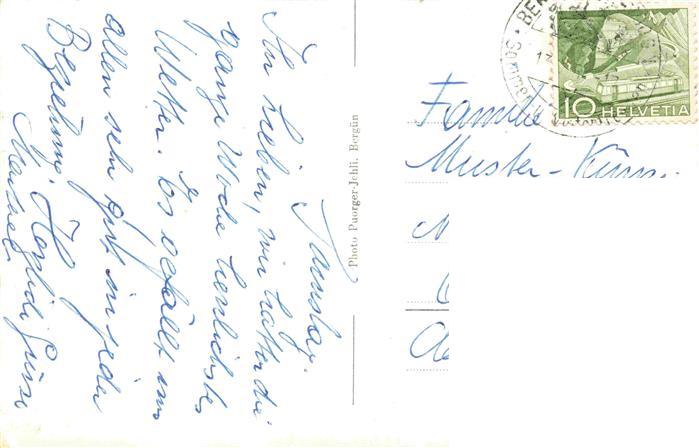 Samstag.
Ihr Lieben, wir hatten die
ganze Woche herrlichstes
Wetter. Es gefällt uns
allen sehr gut in jeder
Beziehung. Herzliche Grüsse
Photo Puorger-Jehli, Bergün
10 HELVETIA
Familie
Muster-